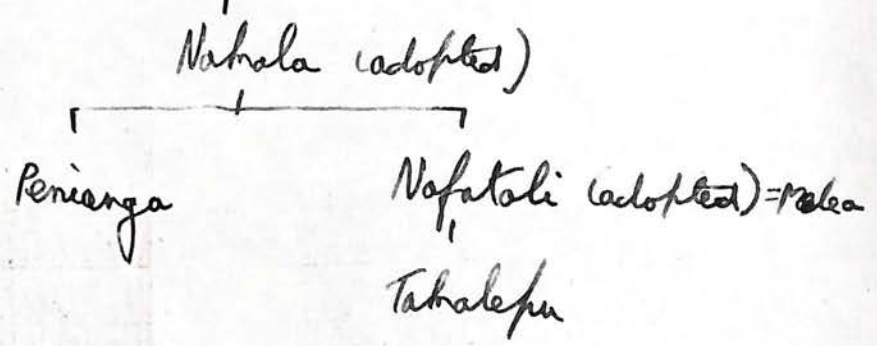 Nahala (adopted)
Penianga Nafatali (adopted) = Melea
Tahalepu